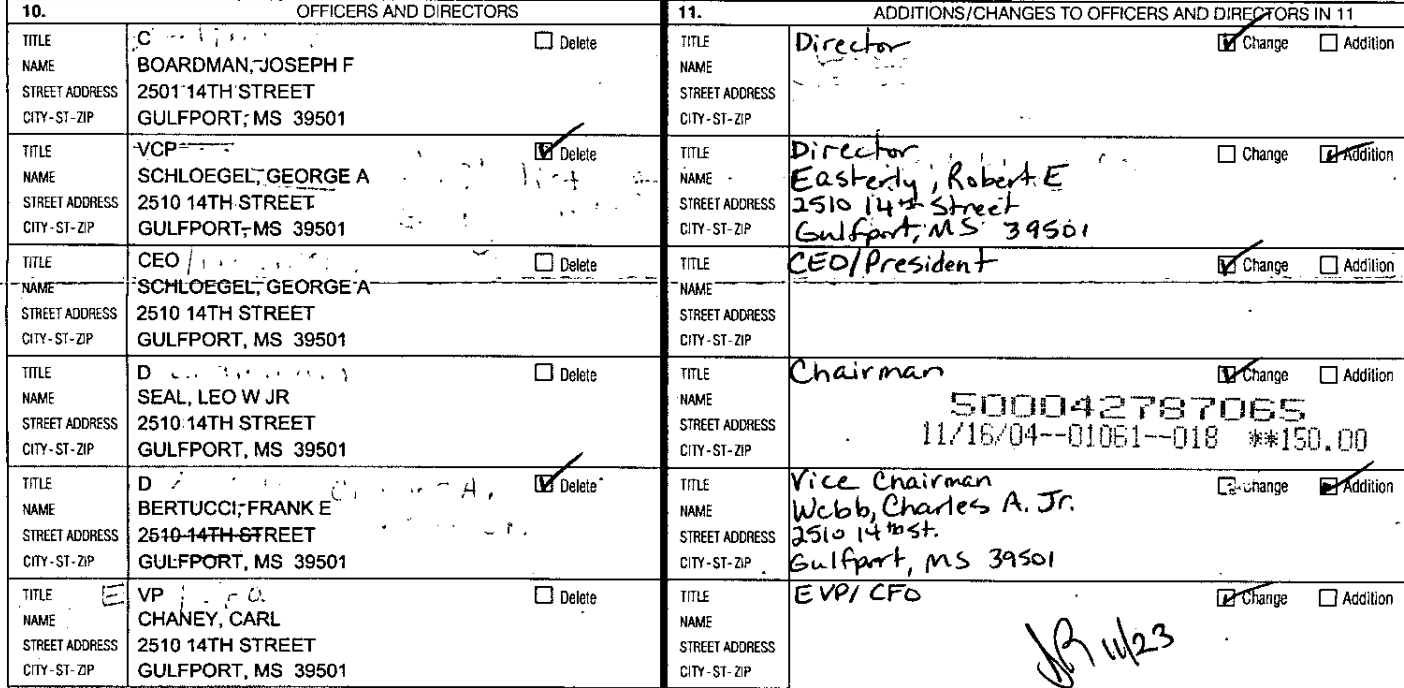 10. OFFICERS AND DIRECTORS
TITLE C Delete
NAME BOARDMAN, JOSEPH F
STREET ADDRESS 2501 14TH STREET
CITY-ST-ZIP GULFPORT, MS 39501
TITLE VCP Delete
NAME SCHLOEGEL, GEORGE A
STREET ADDRESS 2510 14TH STREET
CITY-ST-ZIP GULFPORT, MS 39501
TITLE CEO Delete
NAME SCHLOEGEL, GEORGE A
STREET ADDRESS 2510 14TH STREET
CITY-ST-ZIP GULFPORT, MS 39501
TITLE D Delete
NAME SEAL, LEO W JR
STREET ADDRESS 2510 14TH STREET
CITY-ST-ZIP GULFPORT, MS 39501
TITLE D Delete
NAME BERTUCCI, FRANK E
STREET ADDRESS 2510 14TH STREET
CITY-ST-ZIP GULFPORT, MS 39501
TITLE E VP Delete
NAME CHANEY, CARL
STREET ADDRESS 2510 14TH STREET
CITY-ST-ZIP GULFPORT, MS 39501
11. ADDITIONS/CHANGES TO OFFICERS AND DIRECTORS IN 11
TITLE Director Change Addition
NAME
STREET ADDRESS
CITY-ST-ZIP
TITLE Director Change Addition
NAME Easterly, Robert E
STREET ADDRESS 2510 14th Street
CITY-ST-ZIP Gulfport, MS 39501
TITLE CEO/President Change Addition
NAME
STREET ADDRESS
CITY-ST-ZIP
TITLE Chairman Change Addition
NAME 500042787065
STREET ADDRESS 11/16/04--01061--018 **150.00
CITY-ST-ZIP
TITLE Vice Chairman Change Addition
NAME Webb, Charles A. Jr.
STREET ADDRESS 2510 14th St.
CITY-ST-ZIP Gulfport, MS 39501
TITLE EVP/CFO Change Addition
NAME
STREET ADDRESS 11/23
CITY-ST-ZIP